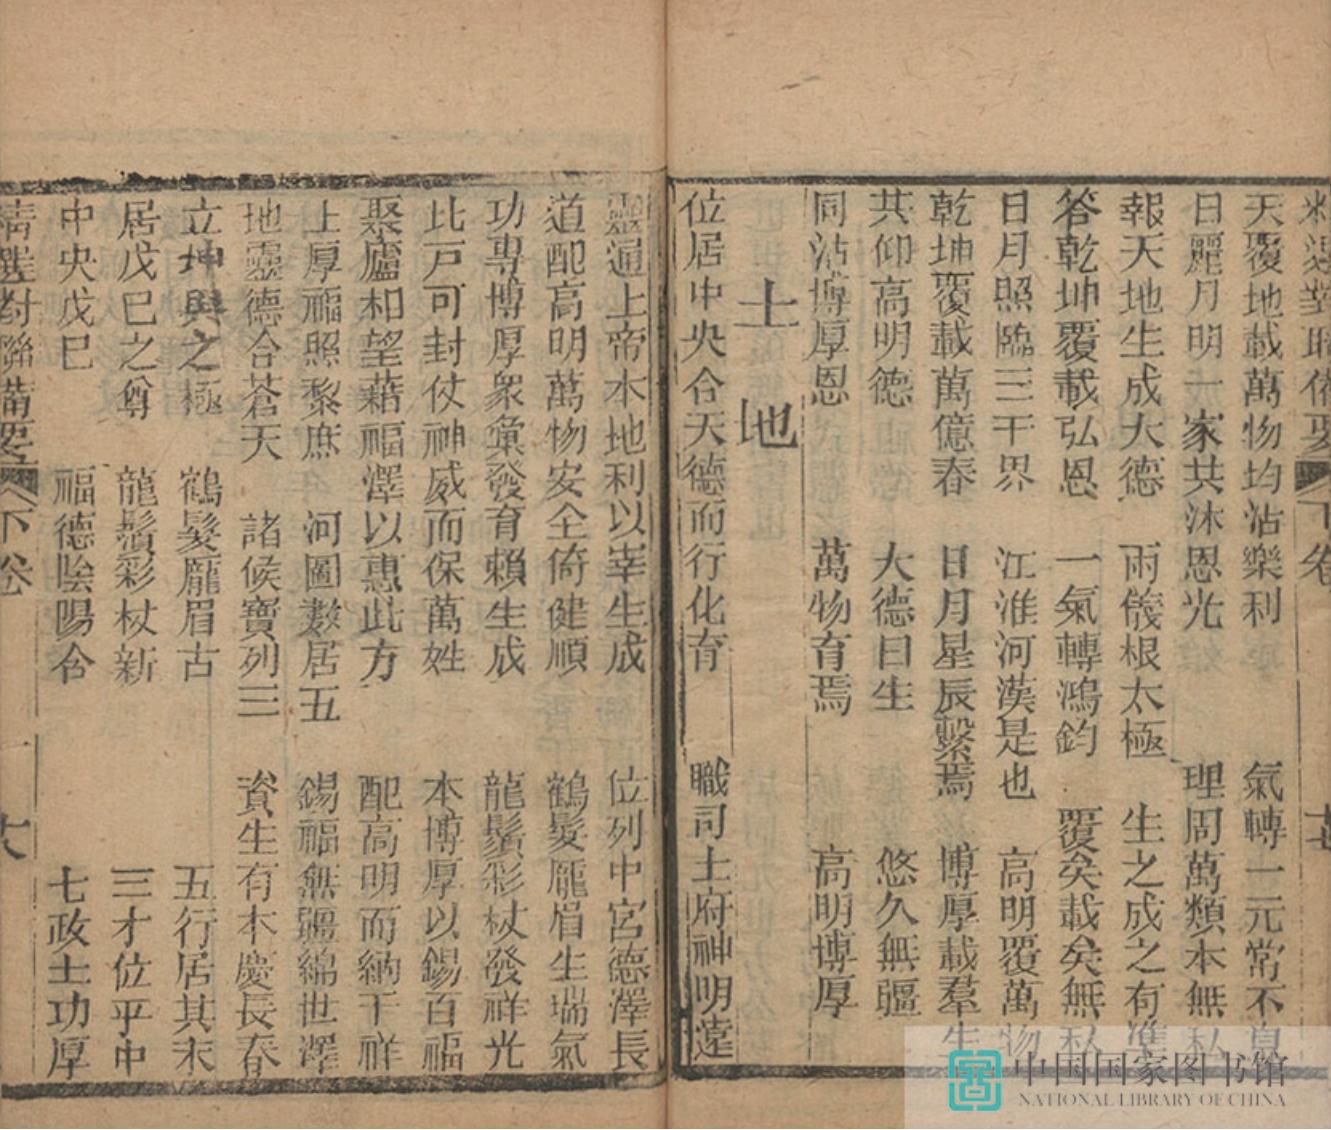 精選對聯備要 下卷 十七
天覆地載萬物均沾樂利 氣轉一元常不息
日麗月明一家共沐恩光 理周萬類本無私
報天地生成大德 兩儀根太極 生之成之有準
答乾坤覆載弘恩 一氣轉鴻鈞 覆矣載矣無私
日月照臨三千界 江淮河漢是也 高明覆萬物
乾坤覆載萬億春 日月星辰繫焉 博厚載羣生
共仰高明德 大德曰生 悠久無疆
同沾博厚恩 萬物育焉 高明博厚
土地
位居中央合天德而行化育 職司土府神明遠
靈通上帝本地利以宰生成 位列中宮德澤長
道配高明萬物安全倚健順 鶴髮龐眉生瑞氣
功專博厚衆彙發育賴生成 龍鬚彩杖發祥光
比戶可封仗神威而保萬姓 本博厚以錫百福
聚廬相望藉福澤以惠此方 配高明而納千祥
土厚福照黎庶 河圖數居五 錫福無疆綿世澤
地靈德合蒼天 諸候寶列三 資生有本慶長春
立坤輿之極 鶴髮龐眉古 五行居其末
居戊巳之尊 龍鬚彩杖新 三才位乎中
中央戊巳 福德陰陽合 七政土功厚
精選對聯備要 下卷 十八
中国国家图书馆
NATIONAL LIBRARY OF CHINA